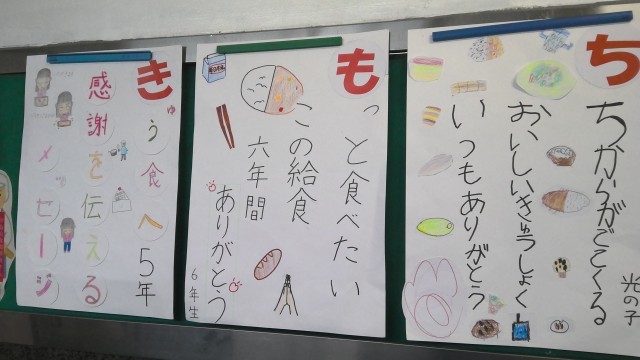 ち
ちからがでてくる
おいしいきゅうしょく
いつもありがとう
光の子
も
っと食べたい
この給食
六年間
ありがとう
6年生
き
ゅう食へ5年
感謝を伝える
メッセージ